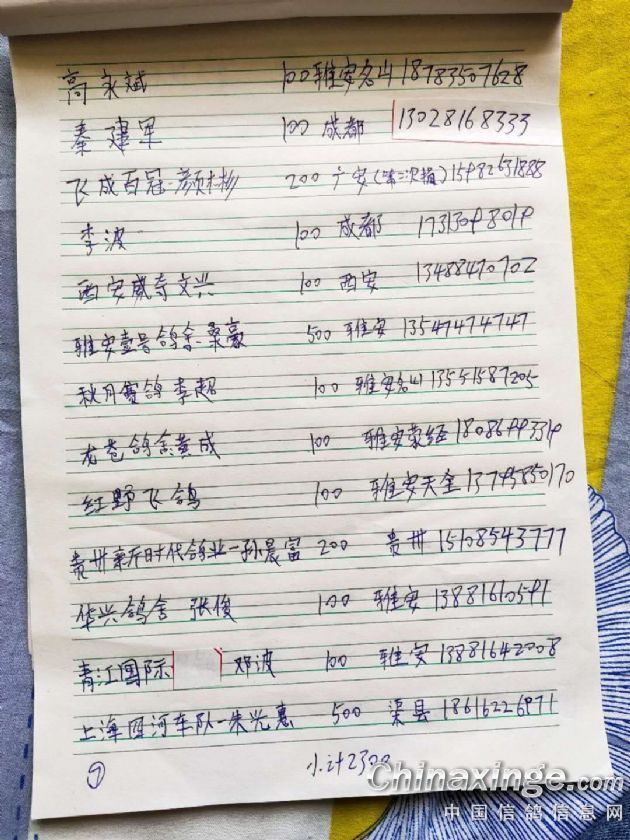 高永斌 100 雅安名山 18783507628
秦建军 100 成都 13028168333
飞成百冠-颜木彬 200 广安(第二次捐) 15982631888
李波 100 成都 17313098019
西安威奇文兴 100 西安 13488470702
雅安壹号鸽舍-桑豪 500 雅安 13547474747
秋月赛鸽 李超 100 雅安名山 13551587205
龙苍鸽舍黄成 100 雅安荥经 18086993319
红野飞鸽 100 雅安天全 13795850170
贵州新开时代鸽业-孙晨富 200 贵州 15108543777
华兴鸽舍 张俊 100 雅安 13881610591
青江国际 邓波 100 雅安 13881642008
上海四河车队-朱光惠 500 渠县 18616226971
① 小计2300
Chinaxinge.com
中国信鸽信息网